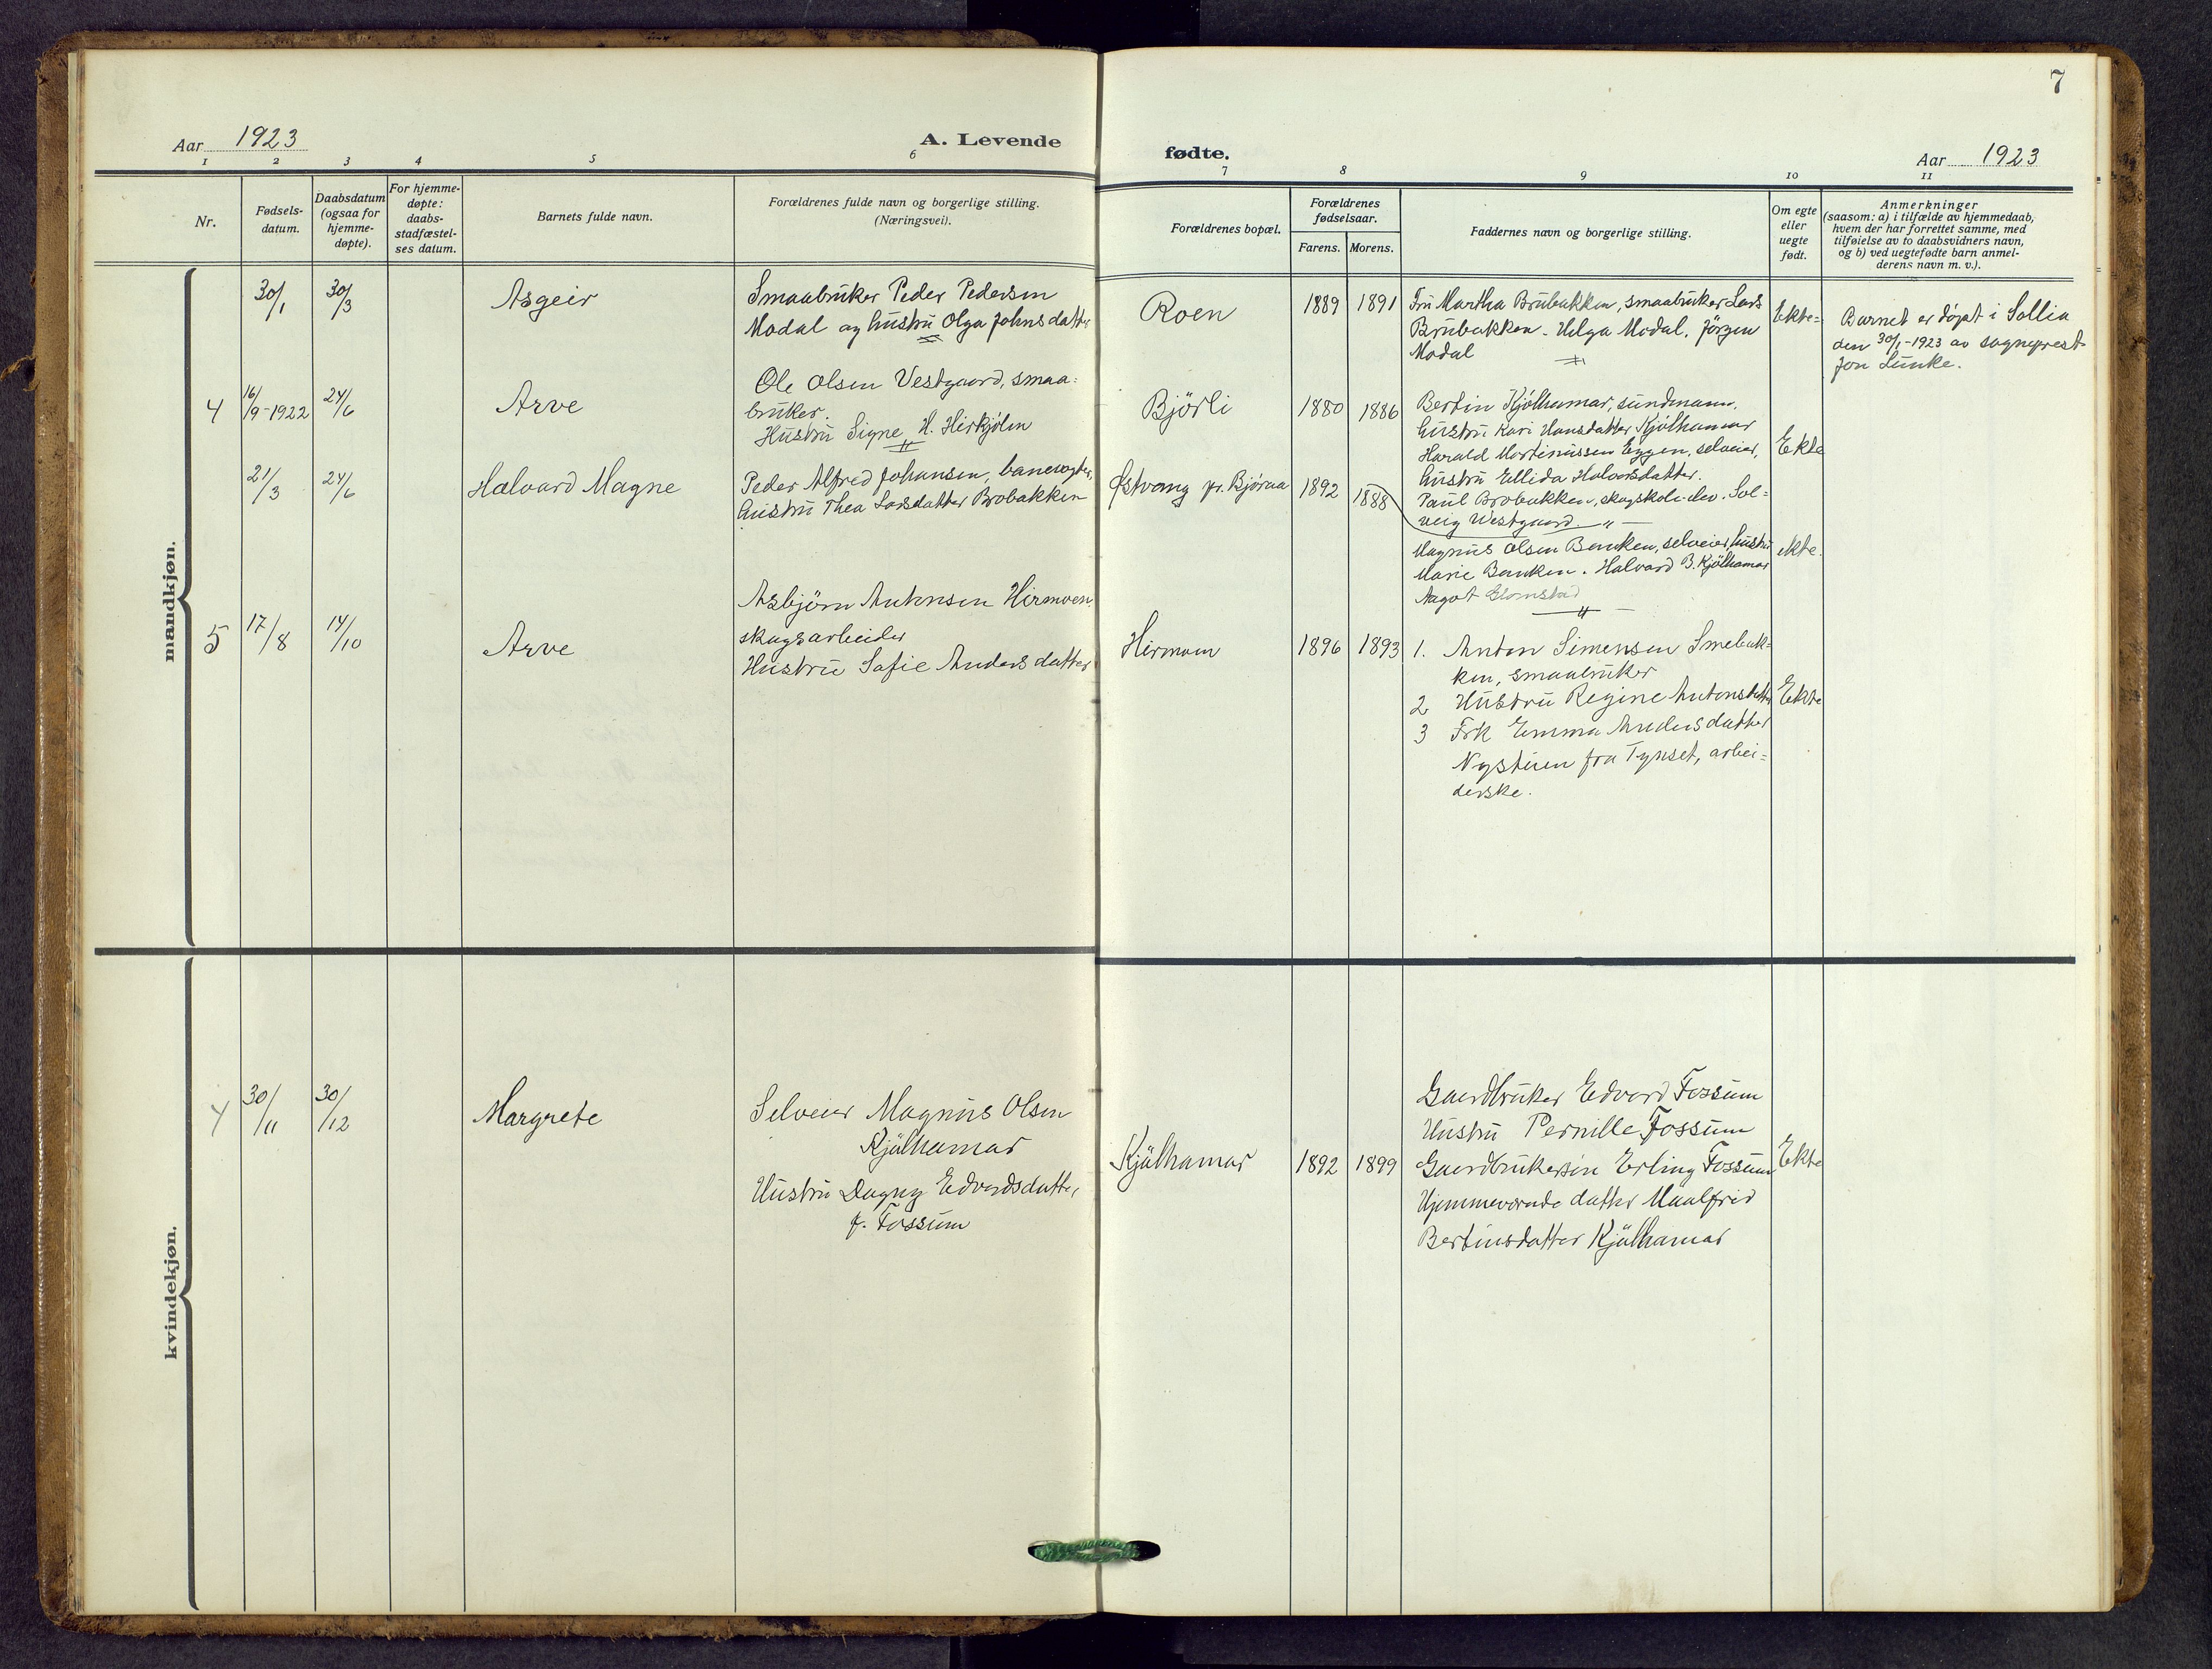 7
Aar 1923
A. Levende
fødte.
Aar 1923
1 2 3 4 5 6 7 8 9 10 11
Nr.
Fødsels-
datum.
Daabsdatum
(ogsaa for
hjemme-
døpte).
For hjemme-
døpte:
daabs-
stadfæstel-
ses datum.
Barnets fulde navn.
Forældrenes fulde navn og borgerlige stilling.
(Næringsvei).
Forældrenes bopæl.
Forældrenes
fødselsaar.
Farens. Morens.
Faddernes navn og borgerlige stilling.
Om egte
eller
uegte
født.
Anmerkninger
(saasom: a) i tilfælde av hjemmedaab,
hvem der har forrettet samme, med
tilføielse av to daabsvidners navn,
og b) ved uegtefødte barn anmel-
derens navn m. v.).
mandkjøn.
30/1 30/3 Asgeir
Smaabruker Peder Pedersen
Modal og hustru Olga Johnsdatter
Roen 1889 1891
Fru Martha Brubakken, smaabruker Lars
Brubakken - Helga Modal. Jörgen
Modal
Ekte=
Barnet er döpt i Sollia
den 30/1-1923 av sogneprest
Jon Lunke.
4 16/9-1922 24/6 Arve
Ole Olsen Vestgaard, smaa=
bruker.
Hustru Signe H. Hirkjölen
Björli 1880 1886
Bertin Kjölhamar, sundmann,
hustru Kari Hansdatter Kjölhamar
Harald Martinussen Eggen, selveier,
hustru Ellida Halvorsdatter.
Paul Brobakken, skogskole-elev. Sol=
veig Westgaard. — " —
Ekte
21/3 24/6 Halvard Magne
Peder Alfred Johansen, banevogter,
hustru Thea Larsdatter Brobakken
Østvang pr. Bjøraa 1892 1888
Magnus Olsen Banken, selveier, hustru
Marie Banken. Halvard B. Kjölhamar
Magot Glomstad
— " —
ekte.
5 17/8 14/10 Arve
Asbjörn Antonsen Hirmoen
skogsarbeider
Hustru Sofie Andersdatter
Hirmoen 1896 1893
1. Anton Simensen Smebak=
ken, smaabruker
2 Hustru Regine Antonsdatter
3 Frk Emma Andersdatter
Nystuen fra Tynset, arbei=
derske.
Ekte
kvindekjøn.
4 30/11 30/12 Margrete
Selveier Magnus Olsen
Kjölhamar
Hustru Dagny Edvardsdatter
f. Fossum
Kjölhamar 1892 1899
Gaardbruker Edvard Fossum
Hustru Pernille Fossum
Gaardbrukersön Erling Fossum
Hjemmeværende datter Maalfrid
Bertinsdatter Kjölhamar
Ekte